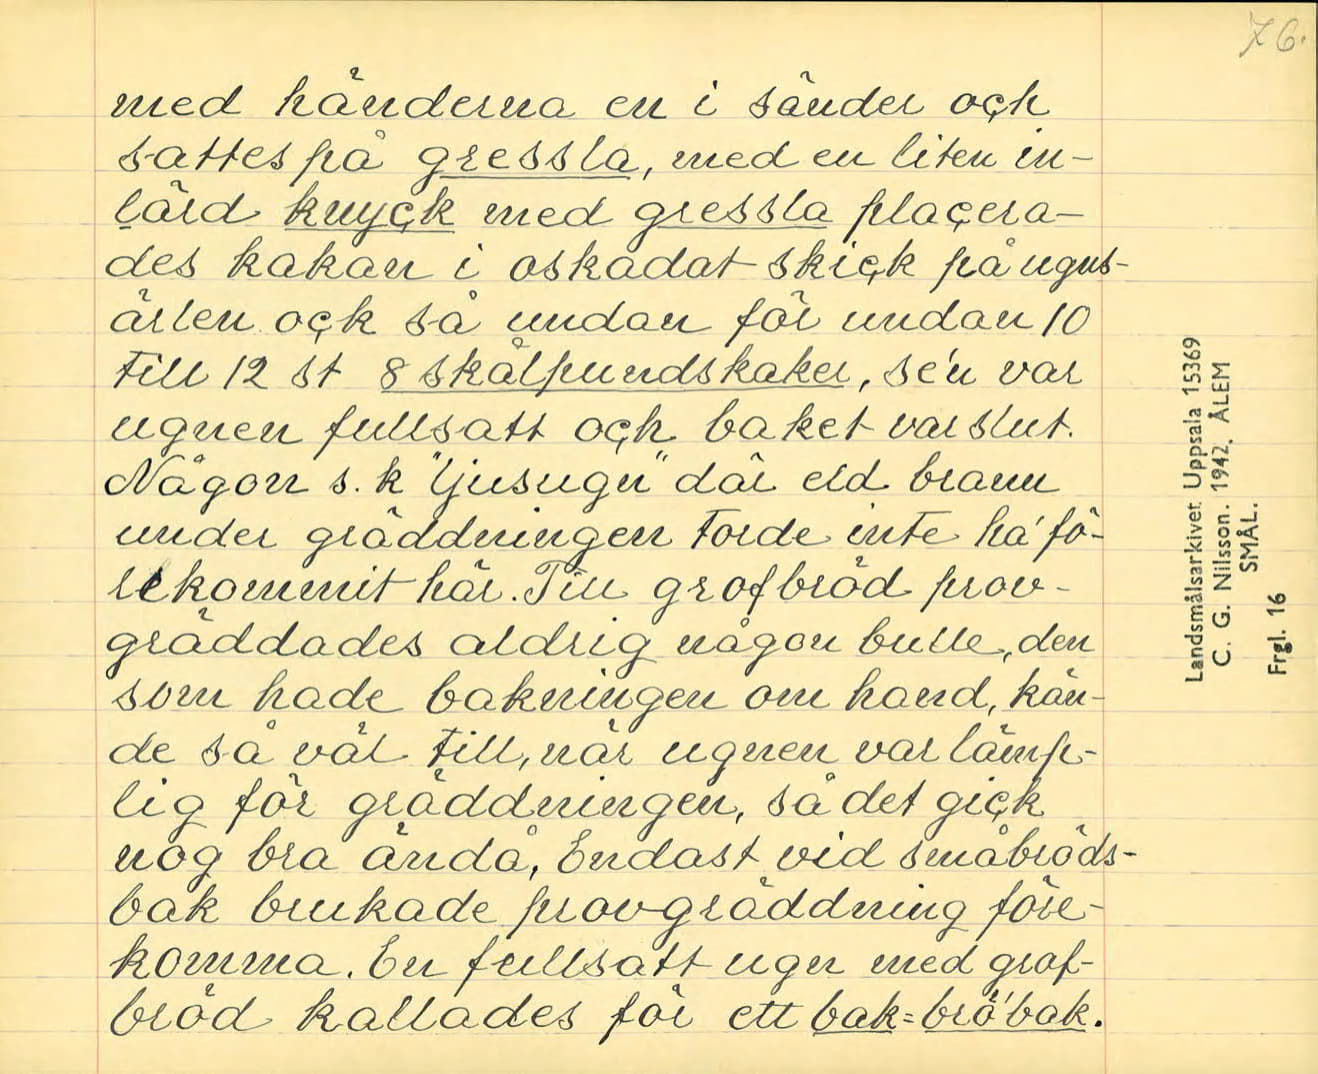 76.
med händerna en i sänder och
sattes på gressla, med en liten in-
lärd knyck med gressla placera-
des kakan i oskadat skick på ugns-
ärlen ock så undan för undan 10
till 12 st 8 skålpundskaker, se'n var
ugnen fullsatt och baket var slut.
Någon s.k "ljusugn" där eld brann
under gräddningen torde inte ha' fö-
rekommit här. Till grofbröd prov-
gräddades aldrig någon bulle, den
som hade bakningen om hand, kän-
de så väl till, när ugnen var lämp-
lig för gräddningen, så det gick
nog bra ändå, Endast vid småbröds-
bak brukade provgräddning före-
komma. En fullsatt ugn med grof-
bröd kallades för ett bak=brö'bak.
Landsmålsarkivet Uppsala 15369
C. G. Nilsson. 1942. ÅLEM
SMÅL.
Frgl. 16